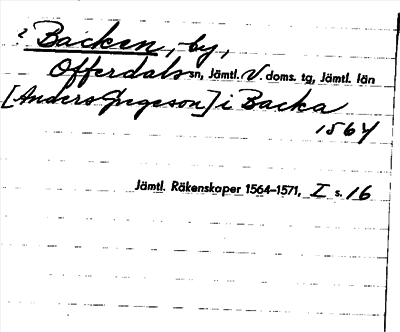 ? Backen, by,
Offerdals sn, Jämtl. V. doms. tg, Jämtl. län
[Anders Ingeson] i Backa
1564
Jämtl. Räkenskaper 1564–1571, I s. 16